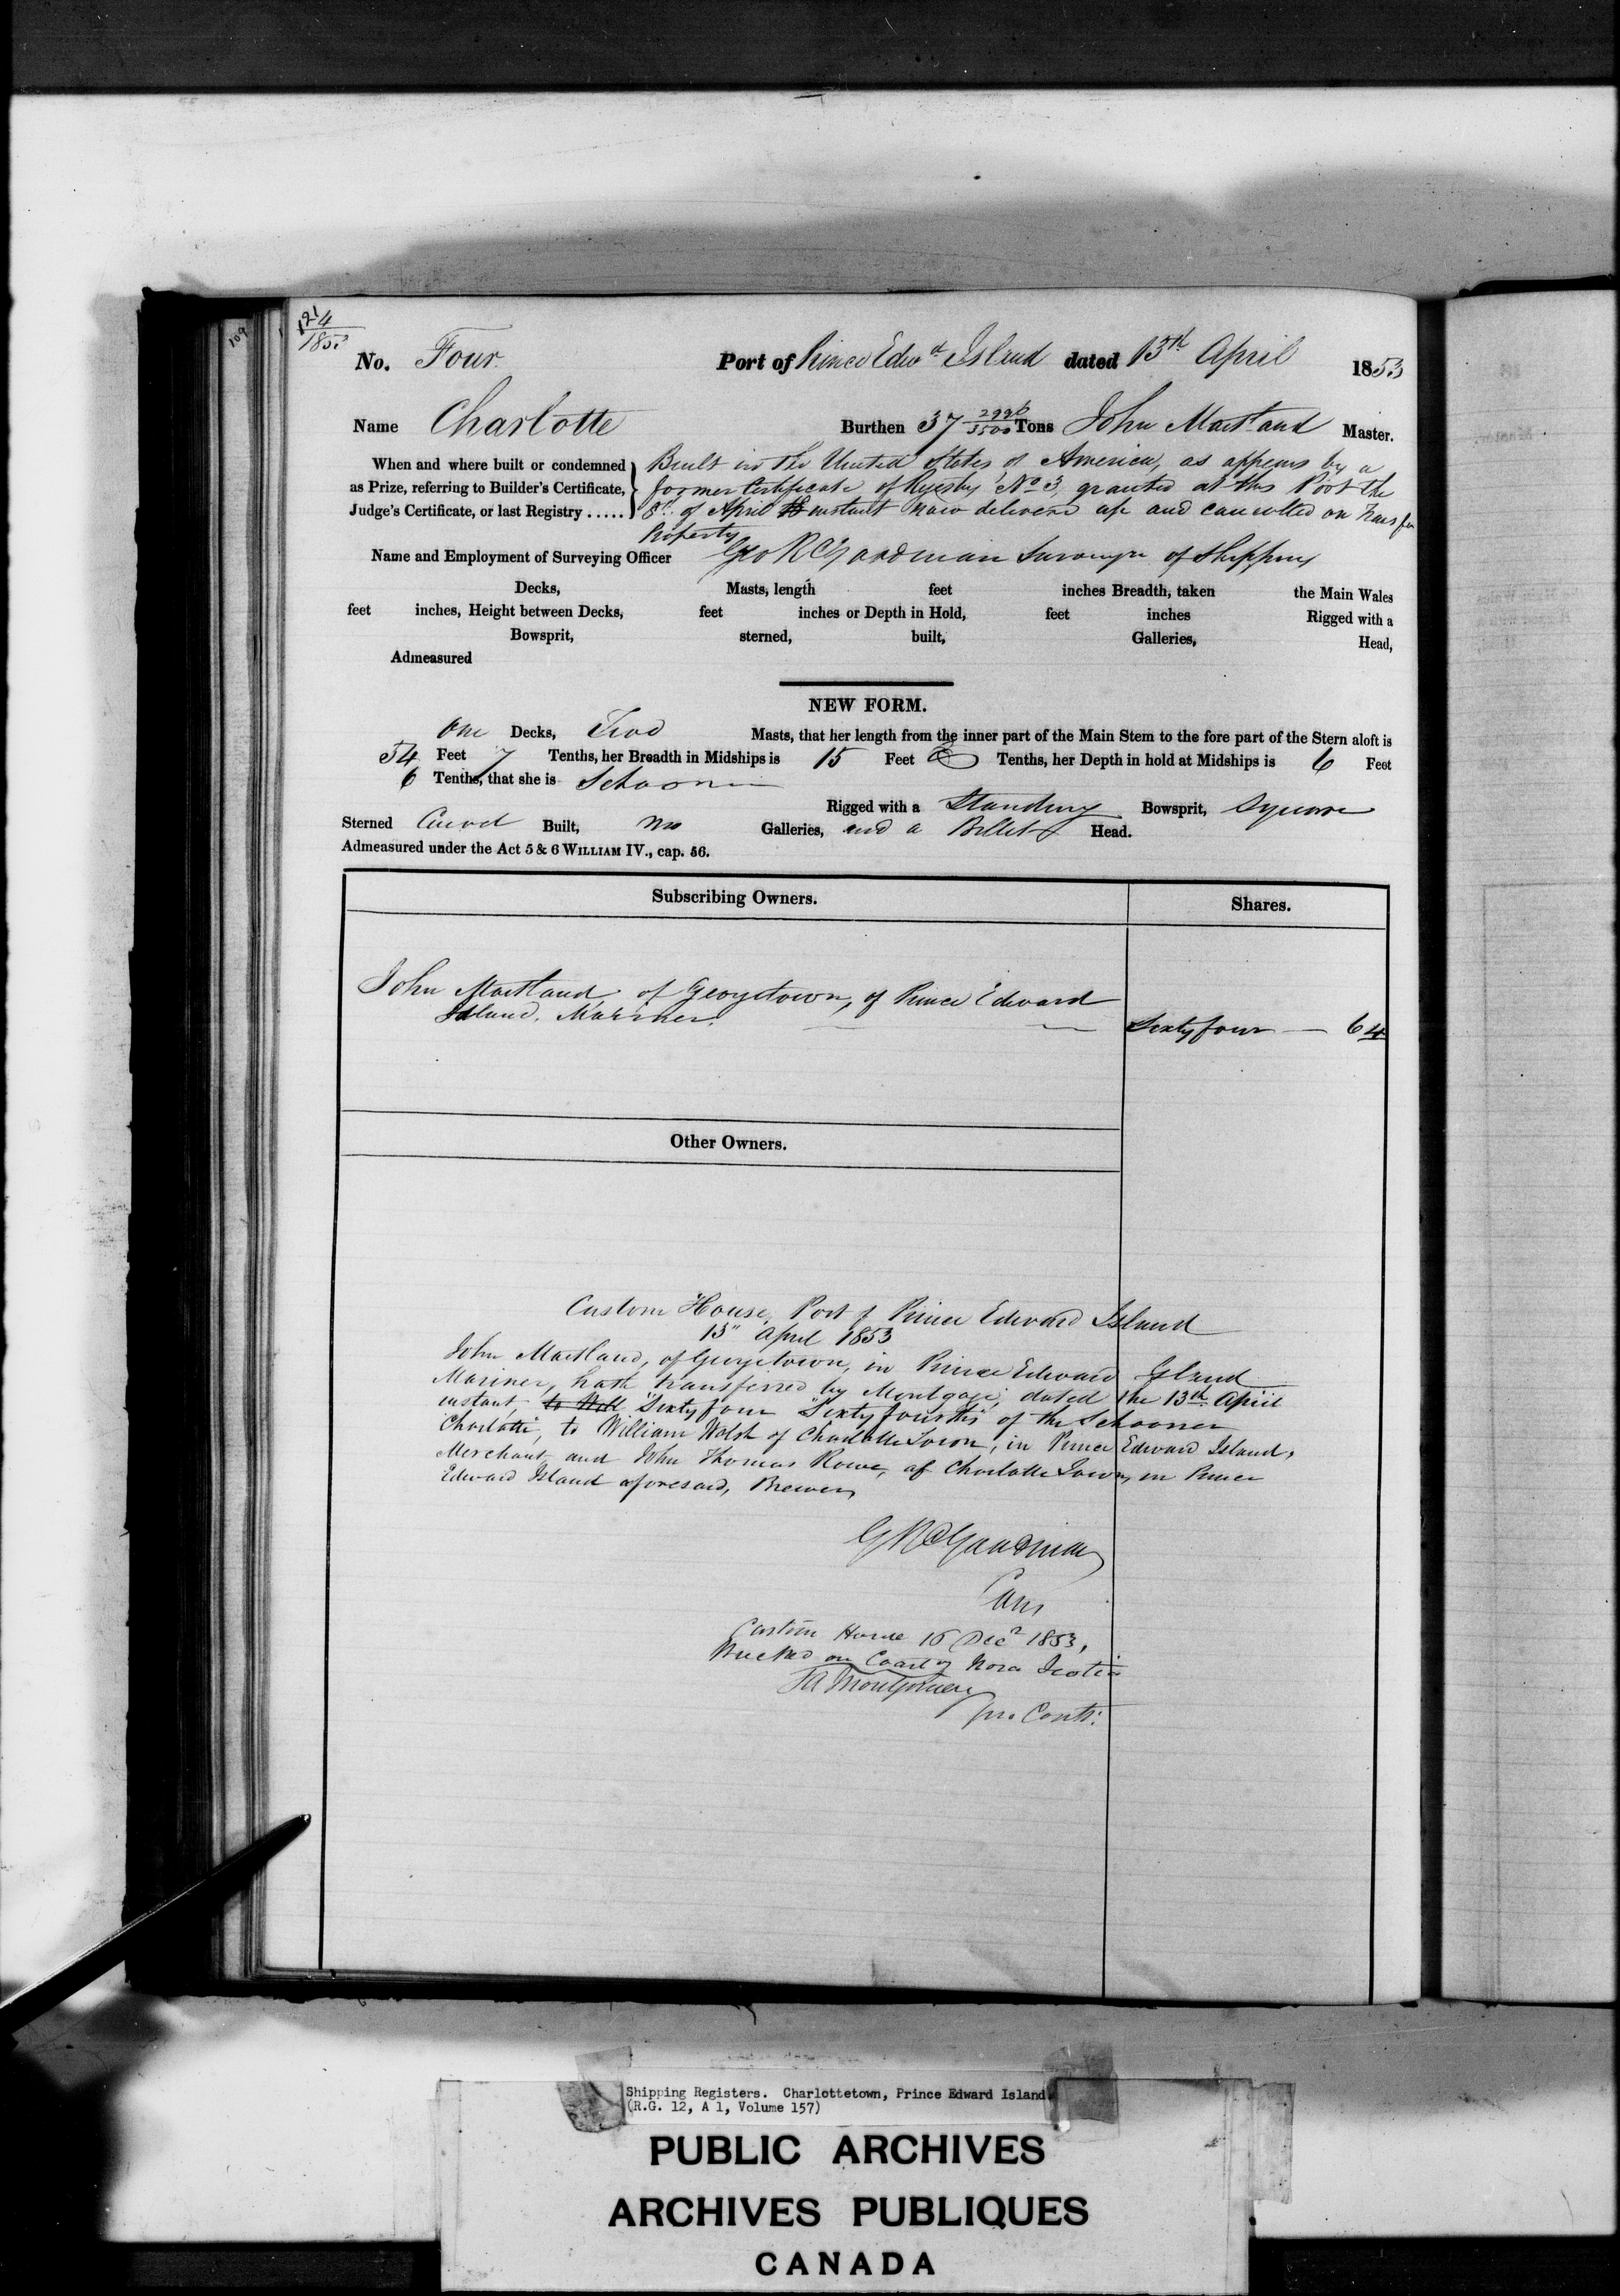 124
1853
109
No. Four. Port of Prince Edwd Island dated 13th April 1853
Name Charlotte Burthen 37 2996/3500 Tons John Maitland Master.
When and where built or condemned as Prize, referring to Builder's Certificate, Judge's Certificate, or last Registry .....
Built in the United States of America, as appears by a
former Certificate of Registry No 3, granted at this Port the
8th of April instant now delivered up and cancelled on Transfer
Property
Name and Employment of Surveying Officer Geo R Goodman Surveyor of Shipping
Decks, Masts, length feet inches Breadth, taken the Main Wales
feet inches, Height between Decks, feet inches or Depth in Hold, feet inches Rigged with a
Bowsprit, sterned, built, Galleries, Head,
Admeasured
NEW FORM.
One Decks, Two Masts, that her length from the inner part of the Main Stem to the fore part of the Stern aloft is
54 Feet 7 Tenths, her Breadth in Midships is 15 Feet Tenths, her Depth in hold at Midships is 6 Feet
6 Tenths, that she is Schooner
Rigged with a Standing Bowsprit, Square
Sterned Carvel Built, no Galleries, and a Billet Head.
Admeasured under the Act 5 & 6 WILLIAM IV., cap. 56.
Subscribing Owners. Shares.
John Maitland of Georgetown, of Prince Edward
Island, Mariner. Sixty four — 64
Other Owners.
Custom House, Port of Prince Edward Island
13" April 1853
John Maitland, of Georgetown, in Prince Edward Island
Mariner, hath transferred by Mortgage, dated the 13th April
instant, Sixty four Sixty fourths of the Schooner
Charlotte, to William Walsh of Charlotte Town, in Prince Edward Island,
Merchant, and John Thomas Rowe, of Charlotte Town, in Prince
Edward Island aforesaid, Brewer
G R Goodman
Custom House 16 Decr 1853,
Wrecked on Coast of Nova Scotia
Montgomery
pro Contr.
Shipping Registers. Charlottetown, Prince Edward Island
(R.G. 12, A 1, Volume 157)
PUBLIC ARCHIVES
ARCHIVES PUBLIQUES
CANADA